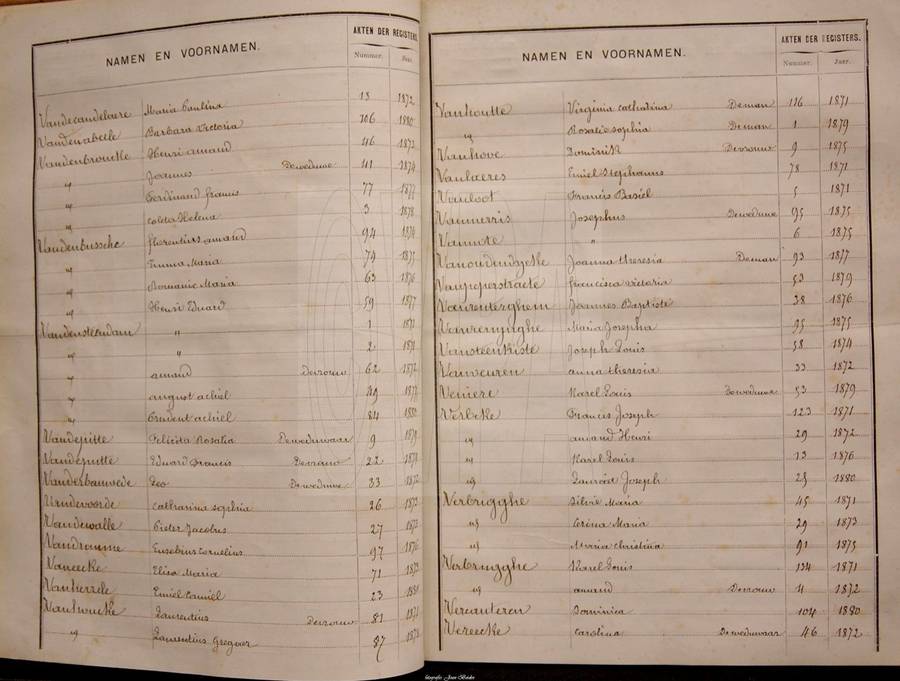 NAMEN EN VOORNAMEN. AKTEN DER REGISTERS.
Nummer. Jaar.
Vandecandelaere Maria Paulina 13 1872
Vandenabeele Barbara Victoria 106 1880
Vandenbroucke Henri amand 46 1873
" Joannes Deweduwe 41 1874
" Ferdinand francis 77 1877
" coleta Helena 3 1878
Vandenbussche florentius amand 94 1874
" Emma Maria 74 1875
" Romanie Maria 63 1876
" Henri Eduard 59 1877
Vandensteendam " 1 1871
" " 2 1871
" amand Devrouw 62 1872
" august achiel 49 1877
" Prudent achiel 84 1880
Vandepitte Felicita Rosalia Deweduwaar 9 1879
Vandeputte Eduard Francis Devrouw 22 1871
Vanderbauwede Leo Deweduwe 33 1872
Vandevoorde Catharina sophia 26 1873
Vandewalle Pieter Jacobus 27 1873
Vandromme Eusebius Cornelius 97 1876
Vaneecke Elisa Maria 71 1873
Vanherzele Emiel Camiel 23 1880
Vanhoucke Laurentius Devrouw 81 1871
" Laurentius Gregoor 87 1873
NAMEN EN VOORNAMEN. AKTEN DER REGISTERS.
Nummer. Jaar.
Vanhoutte Virginia Catharina Deman 116 1871
" Rosalie sophia Deman 1 1879
Vanhove Dominik Devrouw 9 1875
Vanlaeres Emiel Stephanus 78 1871
Vanloot Francis Basiel 5 1871
Vanmerris Josephus Deweduwe 95 1875
" 6 1875
Vanoudendycke Joanna theresia Deman 93 1877
Vanpeperstraete francisca victoria 53 1879
Vanrenterghem Joannes Baptiste 38 1876
Vanrenynghe Maria Josepha 95 1875
Vansteenkiste Joseph Louis 58 1874
Vanveuren anna theresia 33 1872
Veniere Karel Louis Deweduwe 53 1879
Verbeke Francis Joseph 123 1871
" amand Henri 29 1872
" Karel Louis 13 1876
" Joseph 25 1880
Verbrigghe Silvie Maria 45 1871
" Maria 29 1873
" Maria Christina 91 1875
Verbrugghe Karel Louis 134 1871
" amand Devrouw 4 1872
Vercauteren Dominica 104 1880
Vereecke Carolina Deweduwaar 46 1872
fotografie Joan Bolder